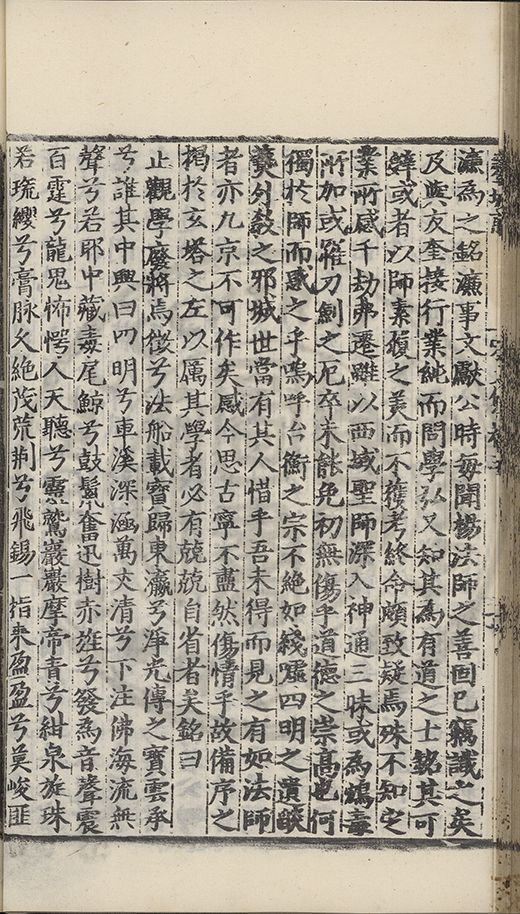 濂為之銘濂事文獻公時每聞楊法師之善固已竊識之矣
及與友奎接行業純而問學弘又知其為有道之士銘其可
辭或者以師素復之美而不獲考終命頗致疑焉殊不知定
業所感千劫弗遷雖以西域聖師深入神通三昧或為鴆毒
所加或罹刀劍之厄卒未能免初無傷乎道德之崇高也何
獨於師而惑之乎嗚呼台衡之宗不絕如綫噓四明之遺燄
燬外教之邪城世嘗有其人惜乎吾未得而見之有如法師
者亦九京不可作矣感今思古寧不盡然傷情乎故備序之
揭於玄塔之左以厲其學者必有兢兢自省者矣銘曰
止觀學廢將焉徵兮法船載寶歸東瀛兮淨光傳之寶雲承
兮誰其中興曰四明兮車溪深涵萬丈清兮下注佛海流無
聲兮若耶中藏毒尾鯨兮鼓鬣奮迅樹赤旌兮發為音聲震
百霆兮龍鬼怖愕人天聽兮靈鷲巖巖摩帝青兮紺泉旋珠
若琉纓兮膏脉久絕茂荒荆兮飛錫一指來盈盈兮莫峻匪